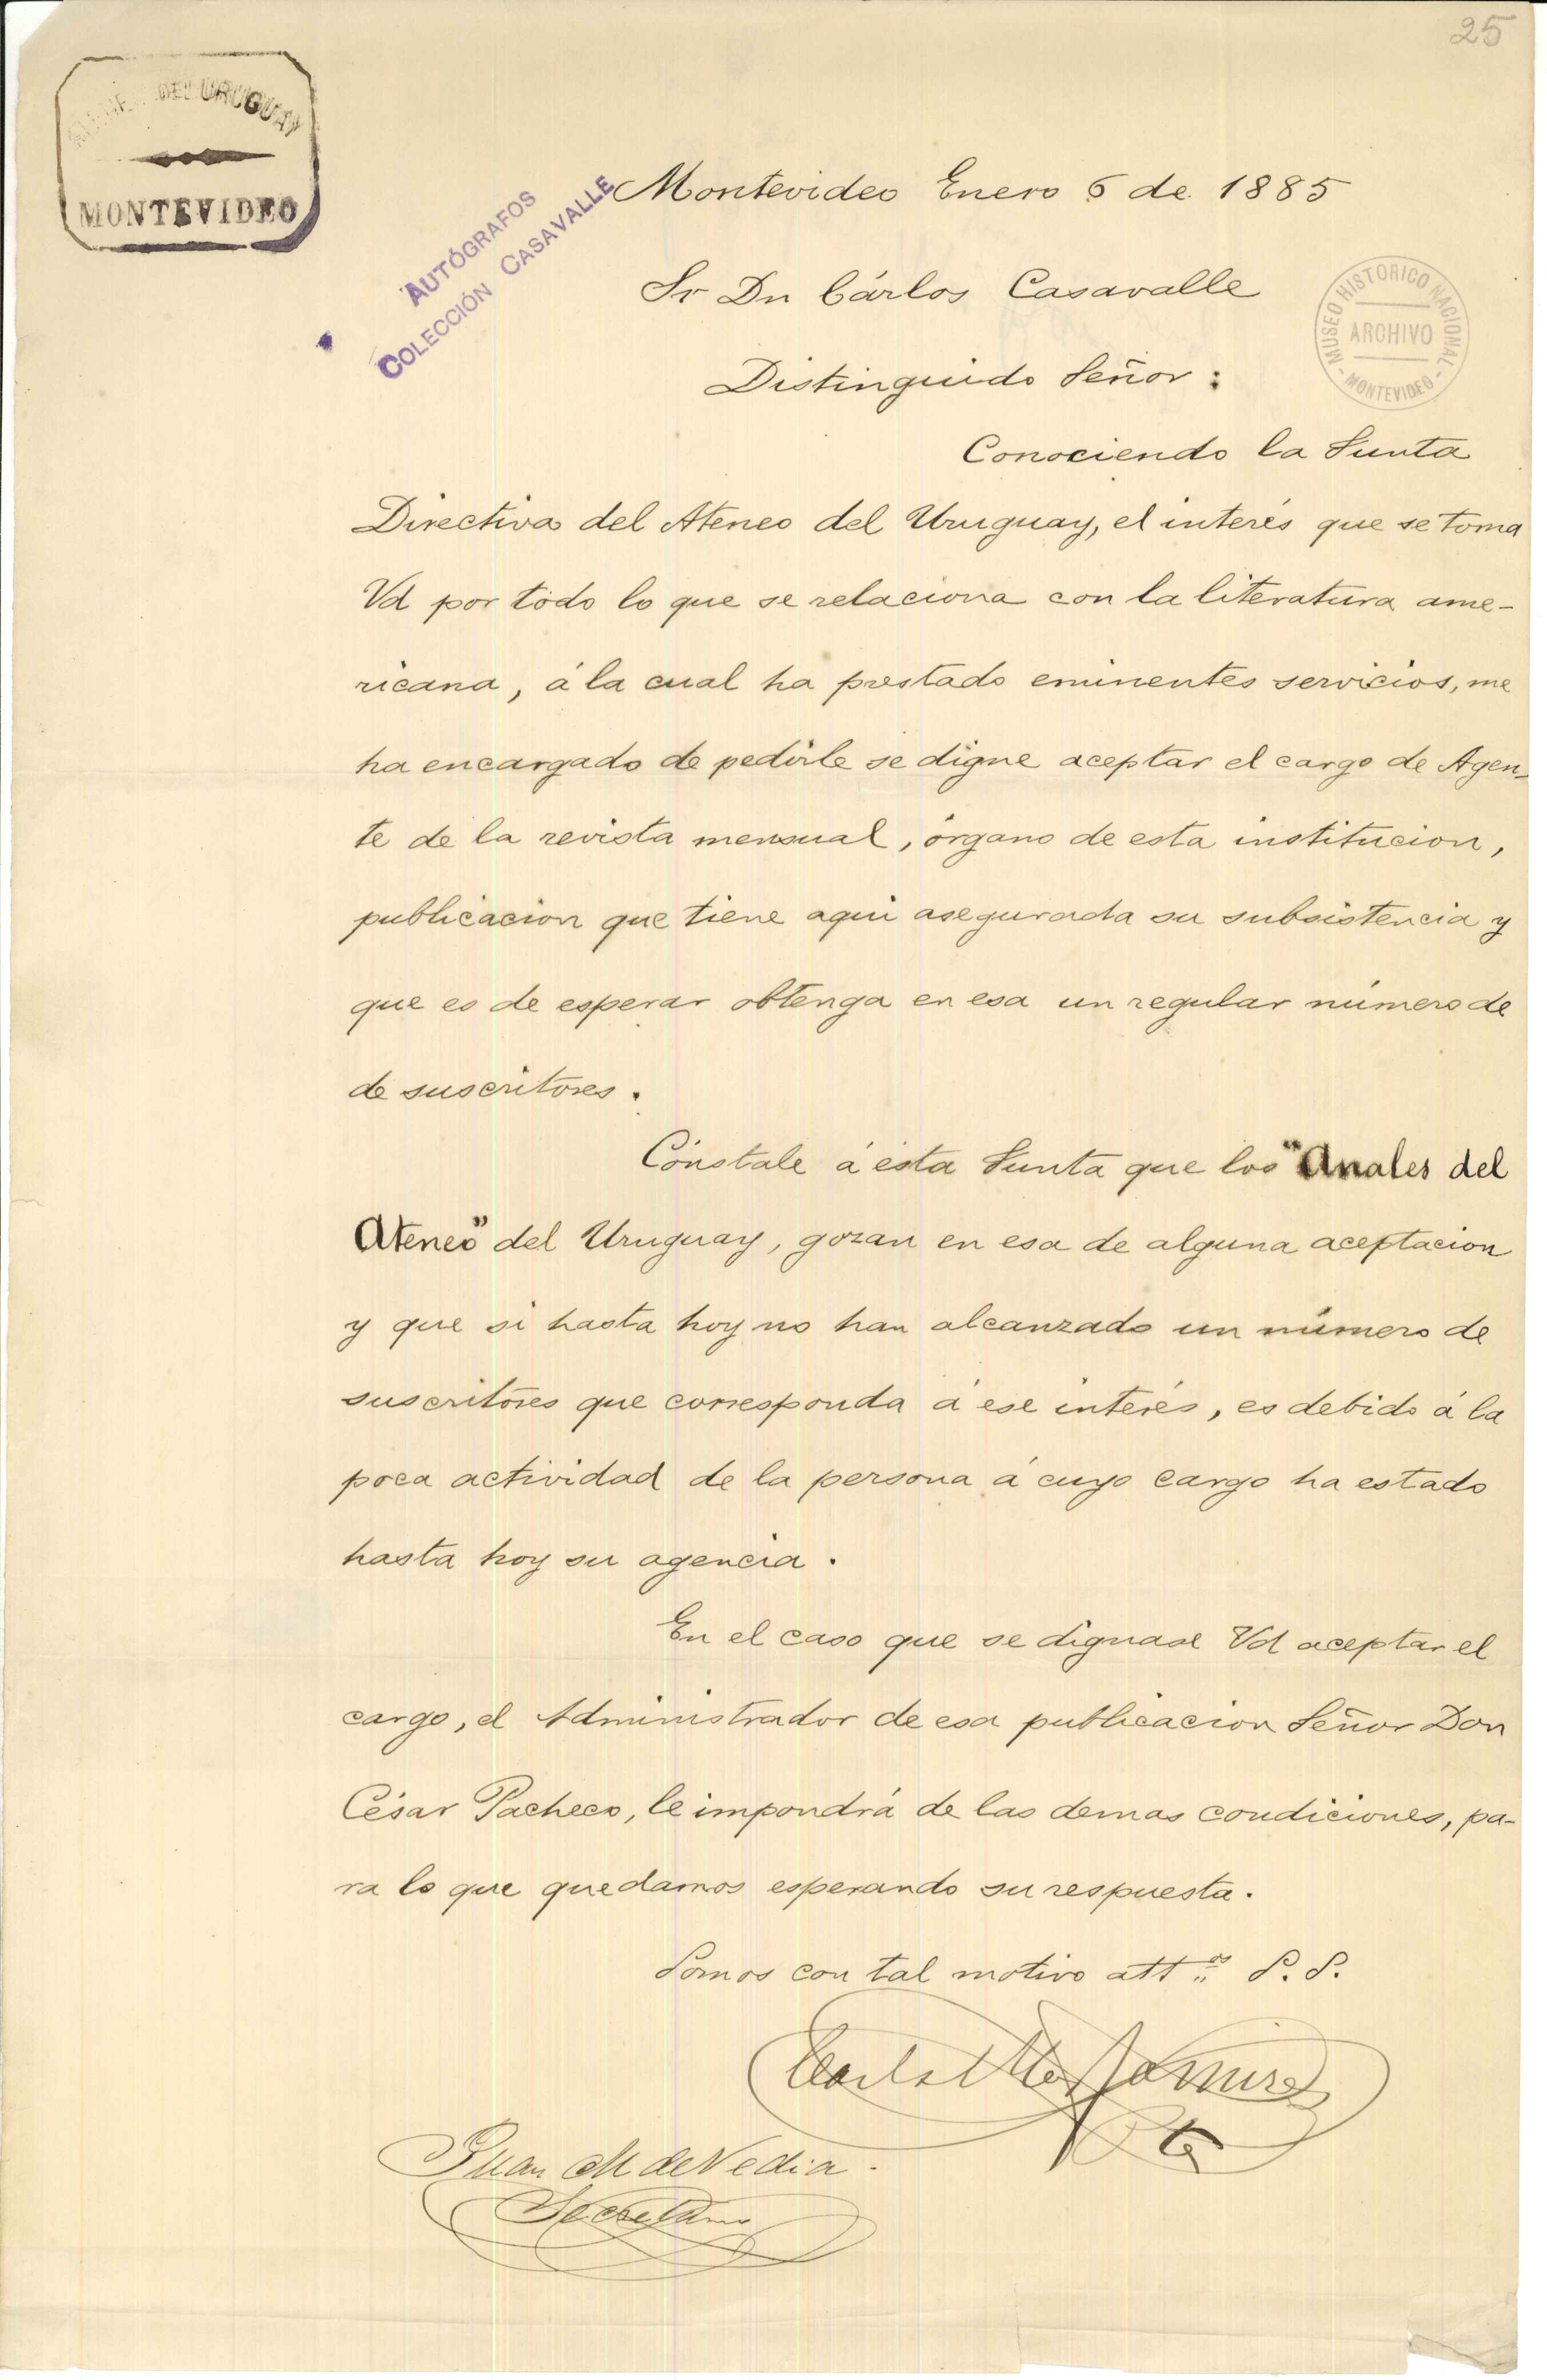 25
ATENEO DEL URUGUAY
MONTEVIDEO
AUTÓGRAFOS
COLECCIÓN CASAVALLE
Montevideo Enero 6 de 1885
Sr Dn Cárlos Casavalle
MUSEO HISTORICO NACIONAL
ARCHIVO
- MONTEVIDEO -
Distinguido Señor :
Conociendo la Junta
Directiva del Ateneo del Uruguay, el interés que se toma
Vd por todo lo que se relaciona con la literatura ame-
ricana, á la cual ha prestado eminentes servicios, me
ha encargado de pedirle se digne aceptar el cargo de Agen-
te de la revista mensual, órgano de esta institucion,
publicacion que tiene aqui asegurada su subsistencia y
que es de esperar obtenga en esa un regular número de
de suscritores.
Cónstale á esta Junta que los "Anales del
Ateneo" del Uruguay, gozan en esa de alguna aceptacion
y que si hasta hoy no han alcanzado un número de
suscritores que corresponda á ese interés, es debido á la
poca actividad de la persona á cuyo cargo ha estado
hasta hoy su agencia.
En el caso que se dignase Vd aceptar el
cargo, el Administrador de esa publicacion Señor Don
César Pacheco, le impondrá de las demas condiciones, pa-
ra lo que quedamos esperando su respuesta.
Somos con tal motivo att.os S. S.
Carlos Ma Ramirez
Pte
Juan M de Vedia.
Secretario